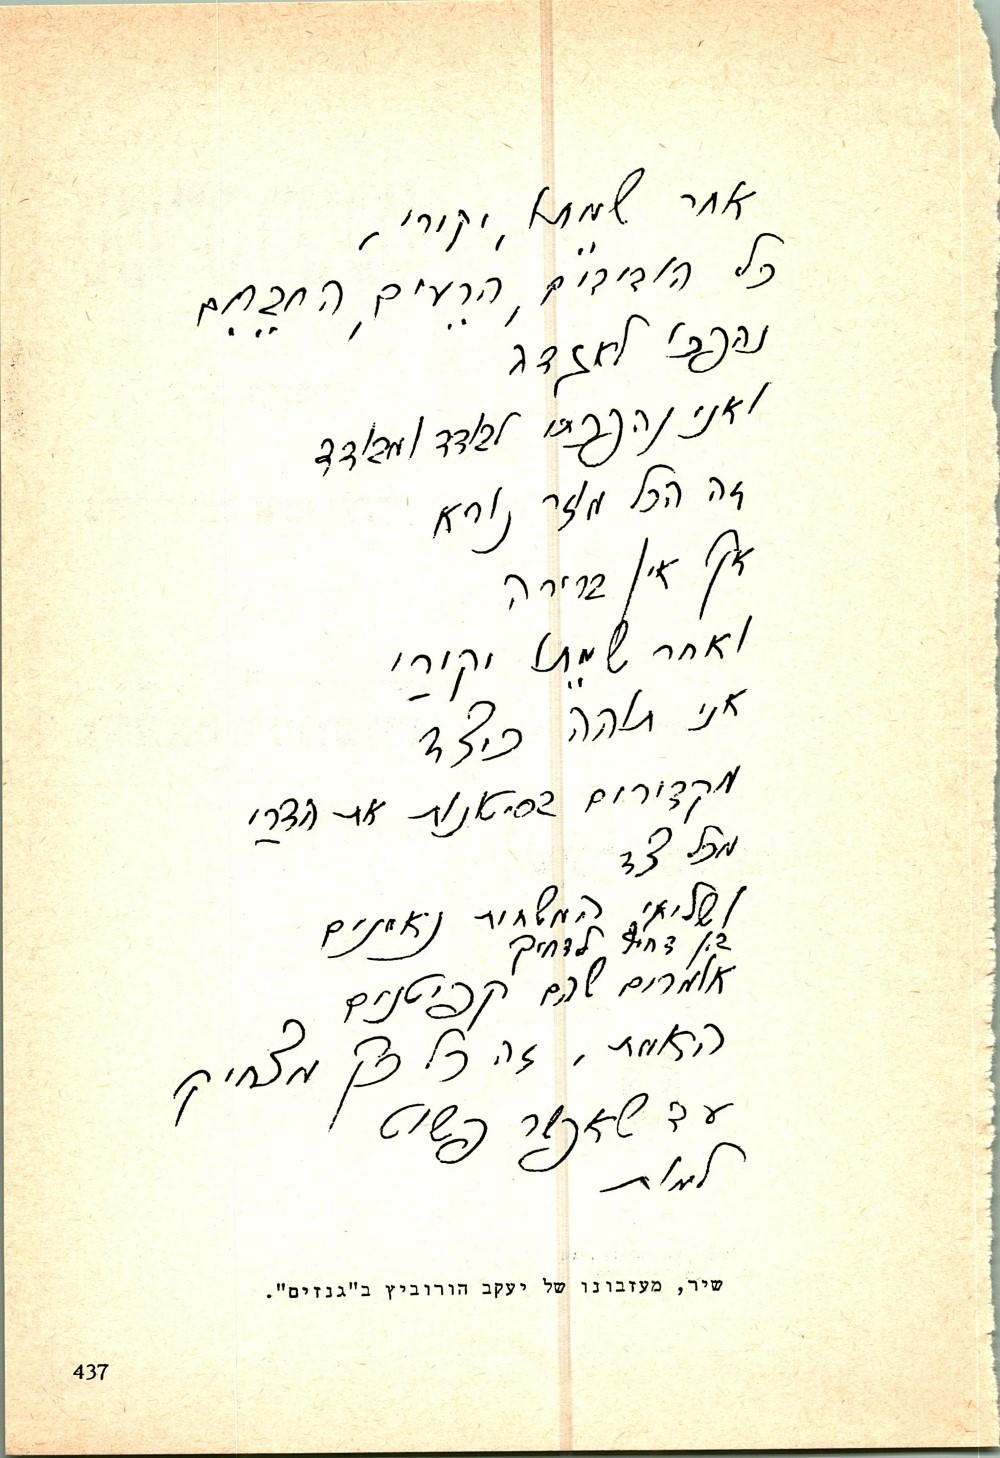 אחר שמתו, יקורי,
כל הידידים, הרעים, החברים
נהפכו לאגדה
ואני נהפכתי לבודד ומבודד
זה הכל מוזר נורא
אך אין ברירה
ואחר שמתו יקורי
אני תוהה כיצד
מקדירים בסיטונות את הדרי
מכל צד
ושליחי המשחית נאמנים
בין דחי לדחיק
אומרים שהם קפיטנים
האמת, זה כל כך מצחיק
עד שאפשר פשוט
למות
שיר, מעזבונו של יעקב הורוביץ ב"גנזים".
437